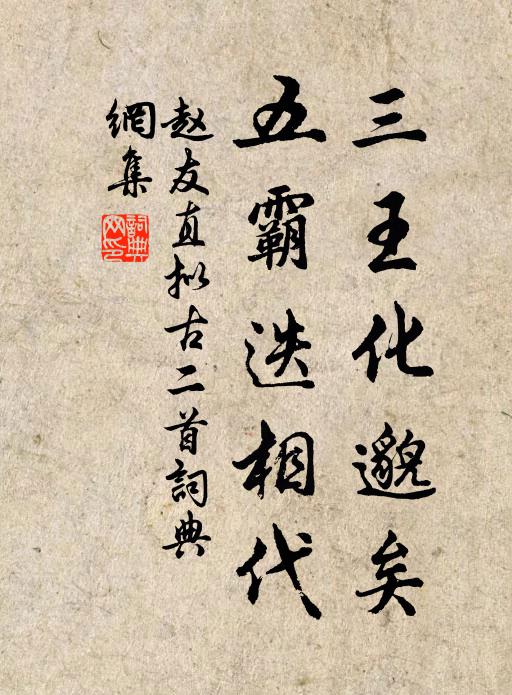 三王化邈矣
五霸迭相代
赵友直拟古二首詞典
網集
詞典网印